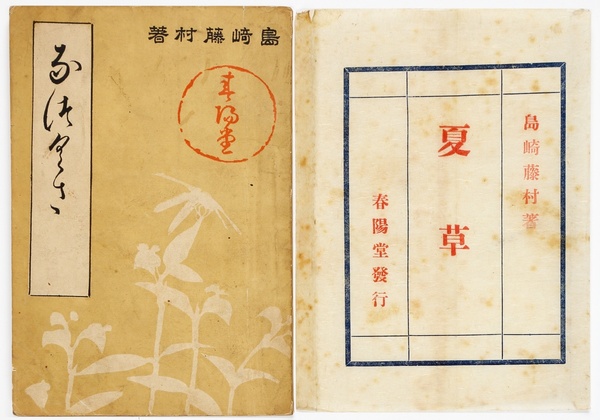 島崎藤村著
春陽堂
なつくさ
島崎藤村著
夏草
春陽堂發行